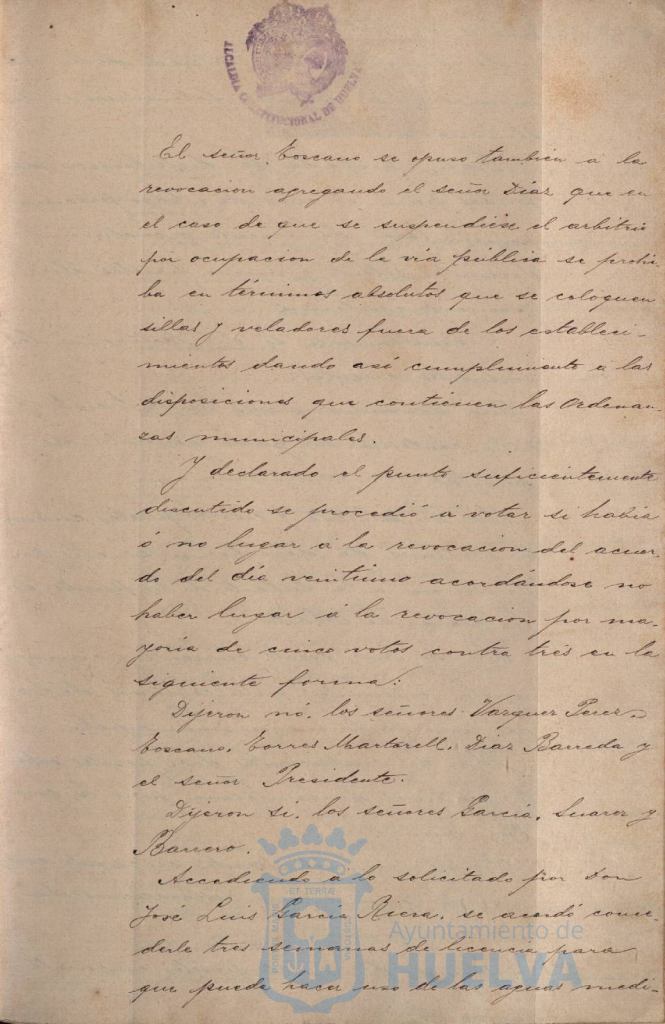 ALCALDIA CONSTITUCIONAL DE HUELVA
El señor Toscano se opuso tambien á la
revocacion agregando el señor Diaz que en
el caso de que se suspendiese el arbitrio
por ocupacion de la via pública se prohi-
ba en términos absolutos que se coloquen
sillas y veladores fuera de los estableci-
mientos dando así cumplimiento á las
disposiciones que contienen las Ordenan-
zas municipales.
Y declarado el punto suficientemente
discutido se procedió á votar si habia
ó no lugar á la revocacion del acuer-
do del dia veintiuno acordándose no
haber lugar á la revocacion por ma-
yoria de cinco votos contra trés en la
siguiente forma:
Dijeron nó, los señores Vazquez Perez,
Toscano, Torres Martorell, Diaz Barreda y
el señor Presidente.
Dijeron si, los señores Garcia, Suarez y
Barrero.
Accediendo a lo solicitado por Don
José Luis Garcia Riera, se acordó conce-
derle tres semanas de licencia para
que pueda hacer uso de las aguas medi-
ET TERRÆ
Ayuntamiento de
HUELVA